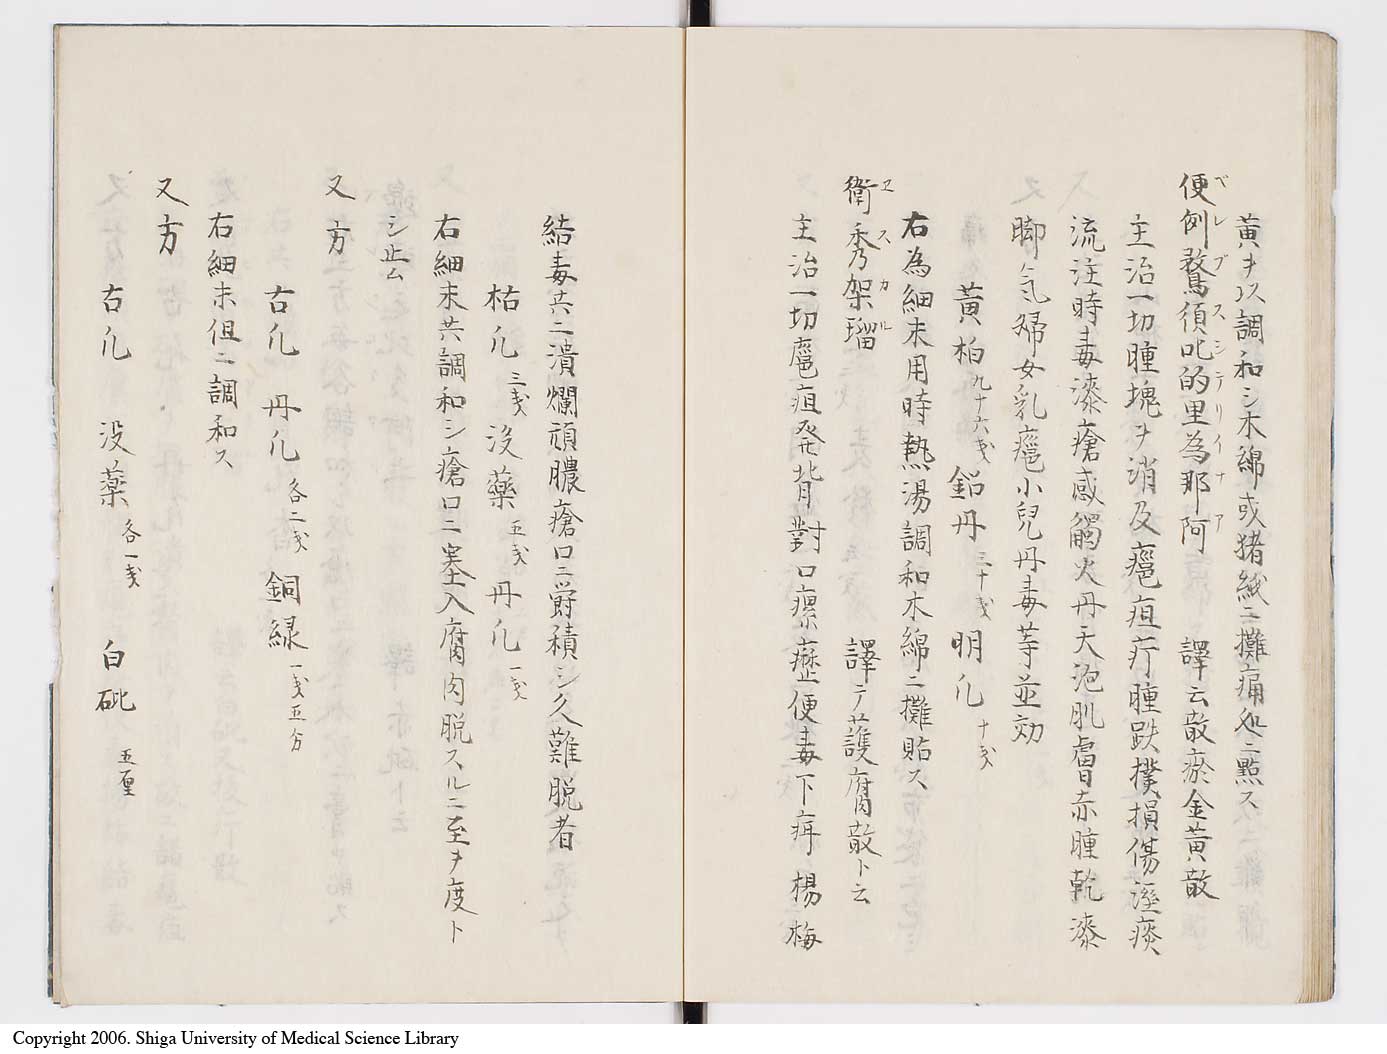 黄ヲ以調和シ木綿或猪絨ニ攤痛処ニ點ス
便例鶩須叱的里為那阿 譯云散瘀金黄散
ベレブスシテリイナア
主治一切腫塊ヲ消及癰疽疔腫跌撲損傷湿痰
流注時毒漆瘡感觸火丹天泡肌膚赤腫乾漆
脚氣婦女乳癰小兒丹毒等並効
黄柏九十六戔 鉛丹三十戔 明凢十戔
右為細末用時熱湯調和木綿ニ攤貼ス
衛秀架瑠 譯テ護腐散ト云
ヱスカル
主治一切癰疽発背對口瘰癧便毒下疳楊梅
結毒共ニ潰爛頑膿瘡口ニ爵積シ久難脱者
枯凢三戔 没薬五戔 丹凢一戔
右細末共調和シ瘡口ニ塞入腐肉脱スルニ至ヲ度ト
シ止ム
又方
古凢 丹凢各二戔 銅緑一戔五分
右細末但ニ調和ス
又方
古凢 没薬各一戔 白砒五厘
Copyright 2006. Shiga University of Medical Science Library